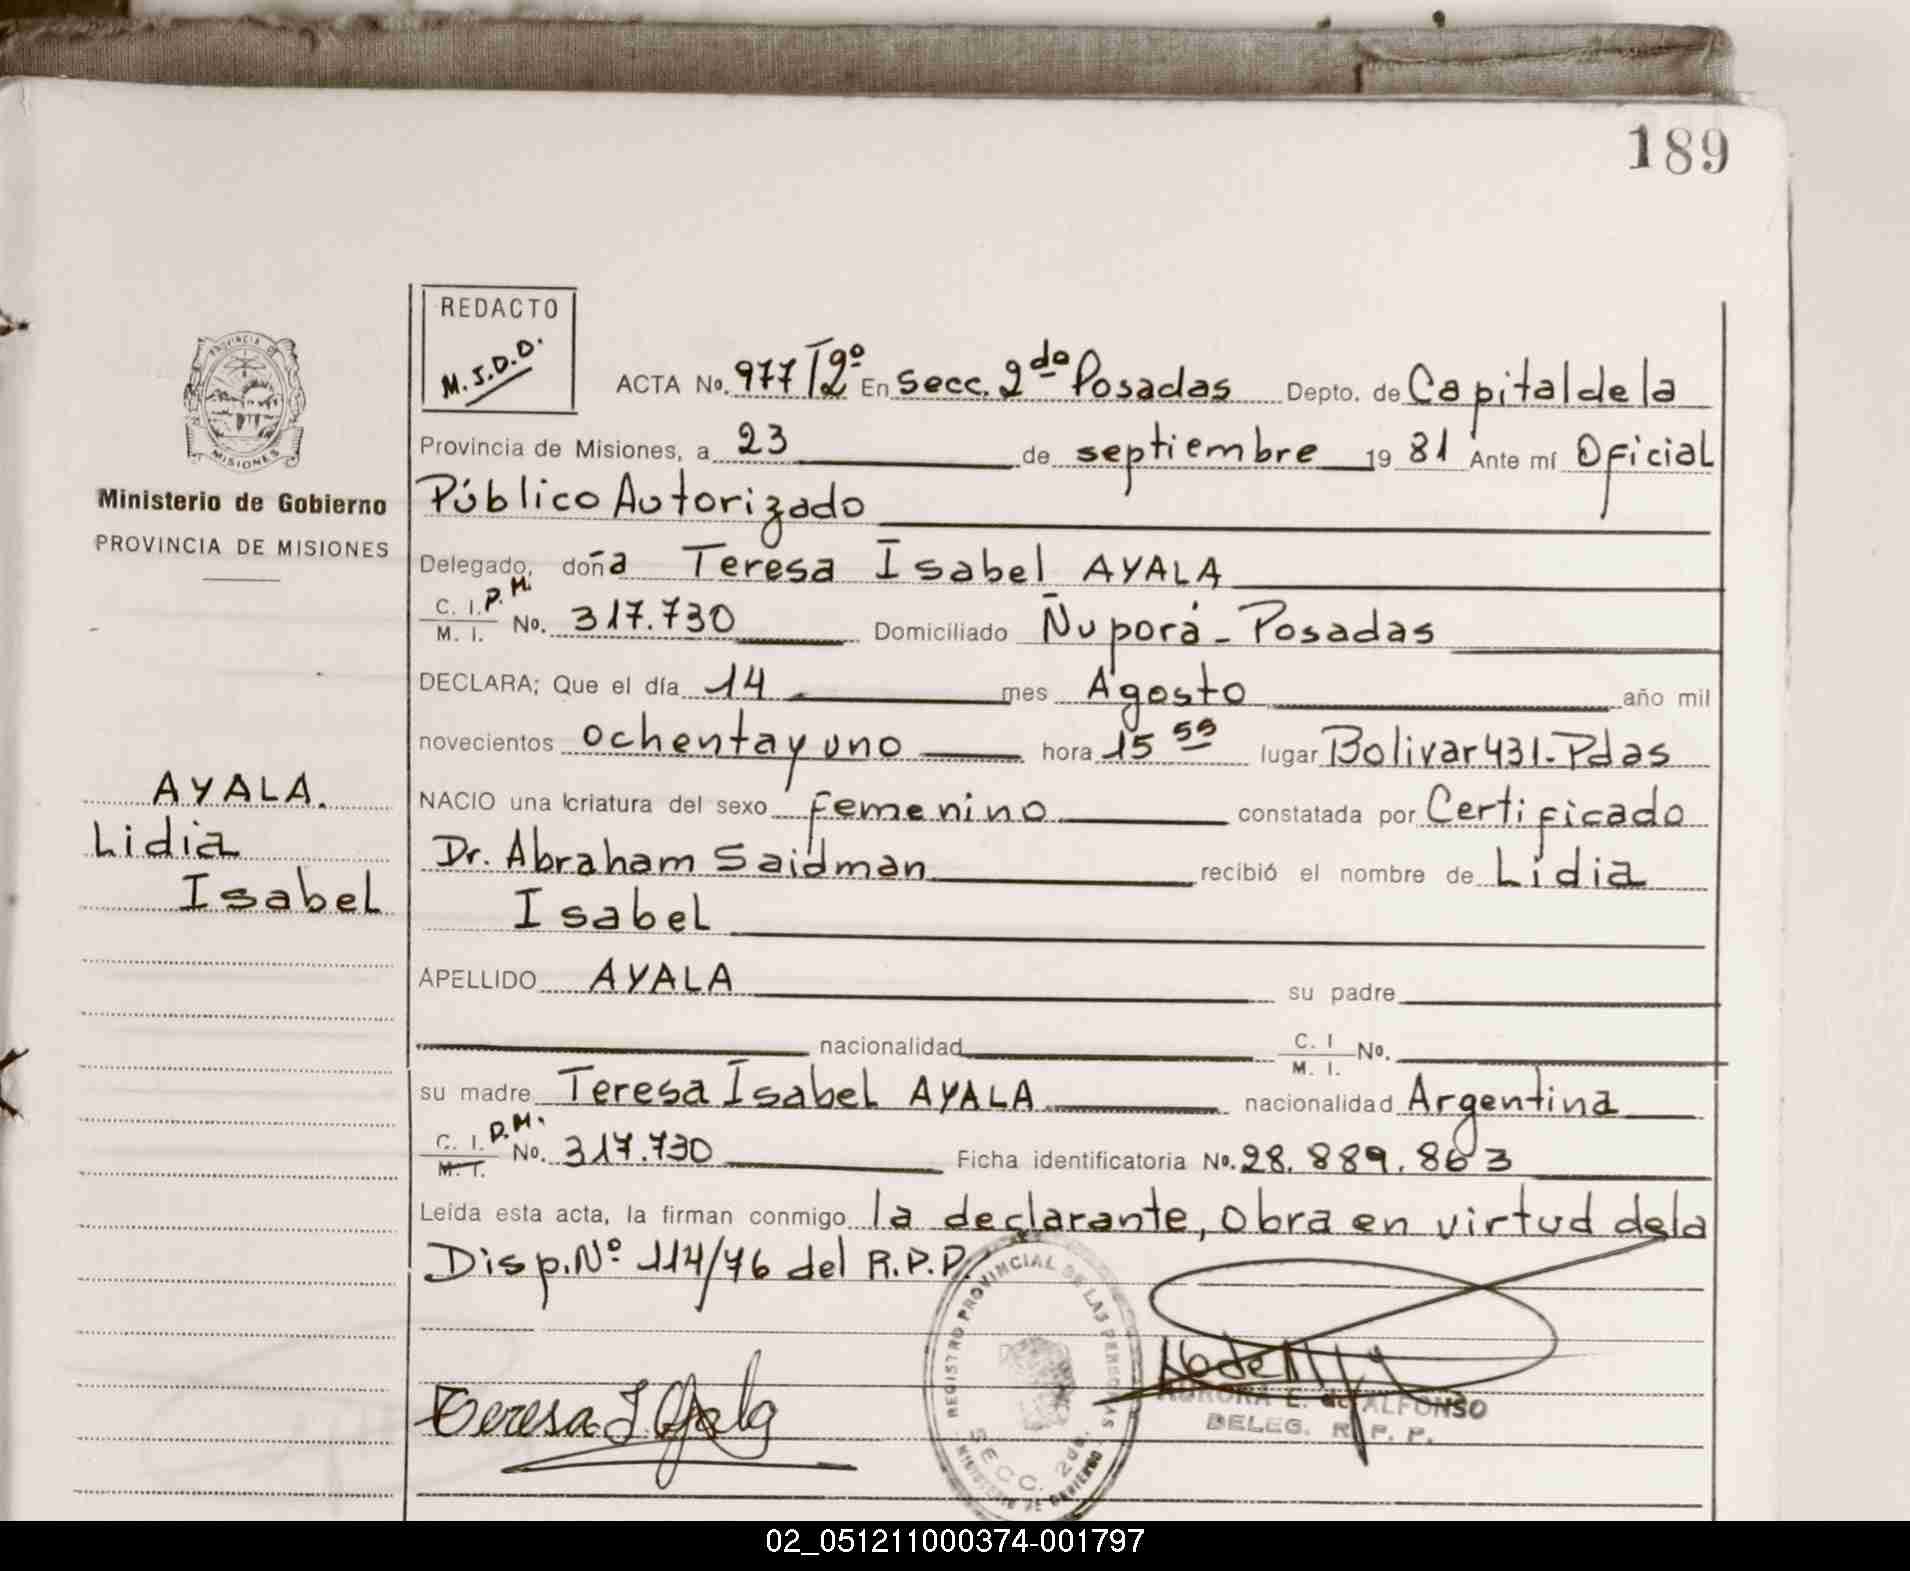 189
REDACTO
M.J.D.D.
ACTA No. 977 T2º En secc. 2da Posadas Depto. de Capital de la
Provincia de Misiones, a 23 de septiembre 19 81 Ante mí Oficial
Público Autorizado
Delegado, doña Teresa Isabel AYALA
C. I. P.M. No. 317.730 Domiciliado Ñuporá - Posadas
M. I.
DECLARA; Que el día 14 mes Agosto año mil
novecientos ochenta y uno hora 15 55 lugar Bolivar 431 - Pdas
NACIO una criatura del sexo femenino constatada por Certificado
Dr. Abraham Saidman recibió el nombre de Lidia
Isabel
APELLIDO AYALA su padre
nacionalidad C. I No.
M. I.
su madre Teresa Isabel AYALA nacionalidad Argentina
C. I. P.M. No. 317.730 Ficha identificatoria No. 28.889.863
M. I.
Leída esta acta, la firman conmigo la declarante, Obra en virtud de la
Disp. Nº 114/76 del R.P.P.
Teresa I. Ayala
REGISTRO PROVINCIAL DE LAS PERSONAS
SECC. 2da.
MINISTERIO DE GOBIERNO
AURORA E. de ALFONSO
DELEG. R. P. P.
PROVINCIA DE
MISIONES
Ministerio de Gobierno
PROVINCIA DE MISIONES
AYALA.
Lidia
Isabel
02_051211000374-001797